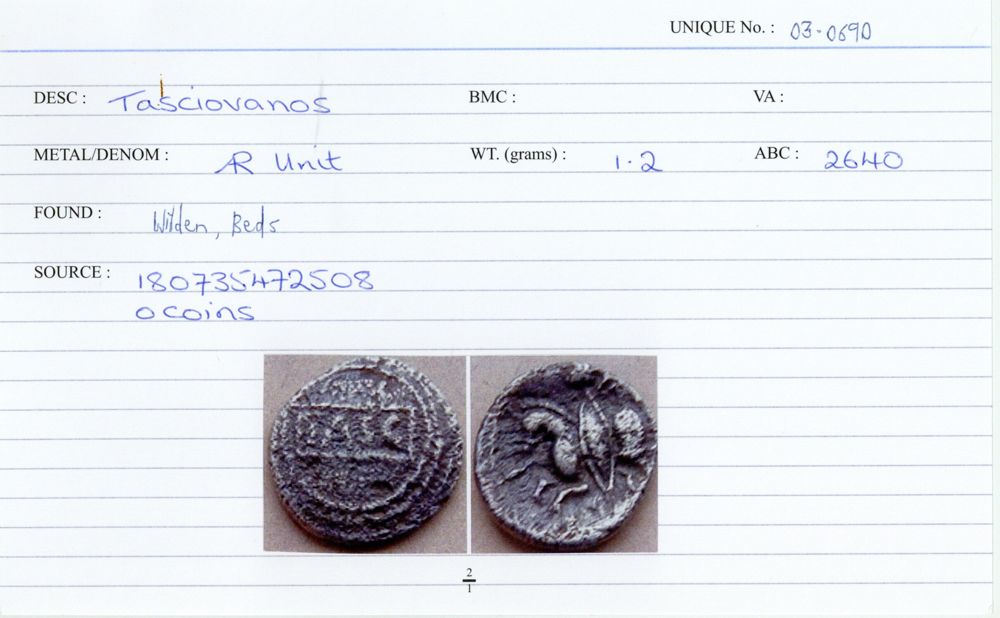 UNIQUE No. : 03-0690
DESC : Tasciovanos BMC : VA :
METAL/DENOM : AR Unit WT. (grams) : 1.2 ABC : 2640
FOUND : Wilden, Beds
SOURCE : 180735472508
0 coins
TASC
2
1